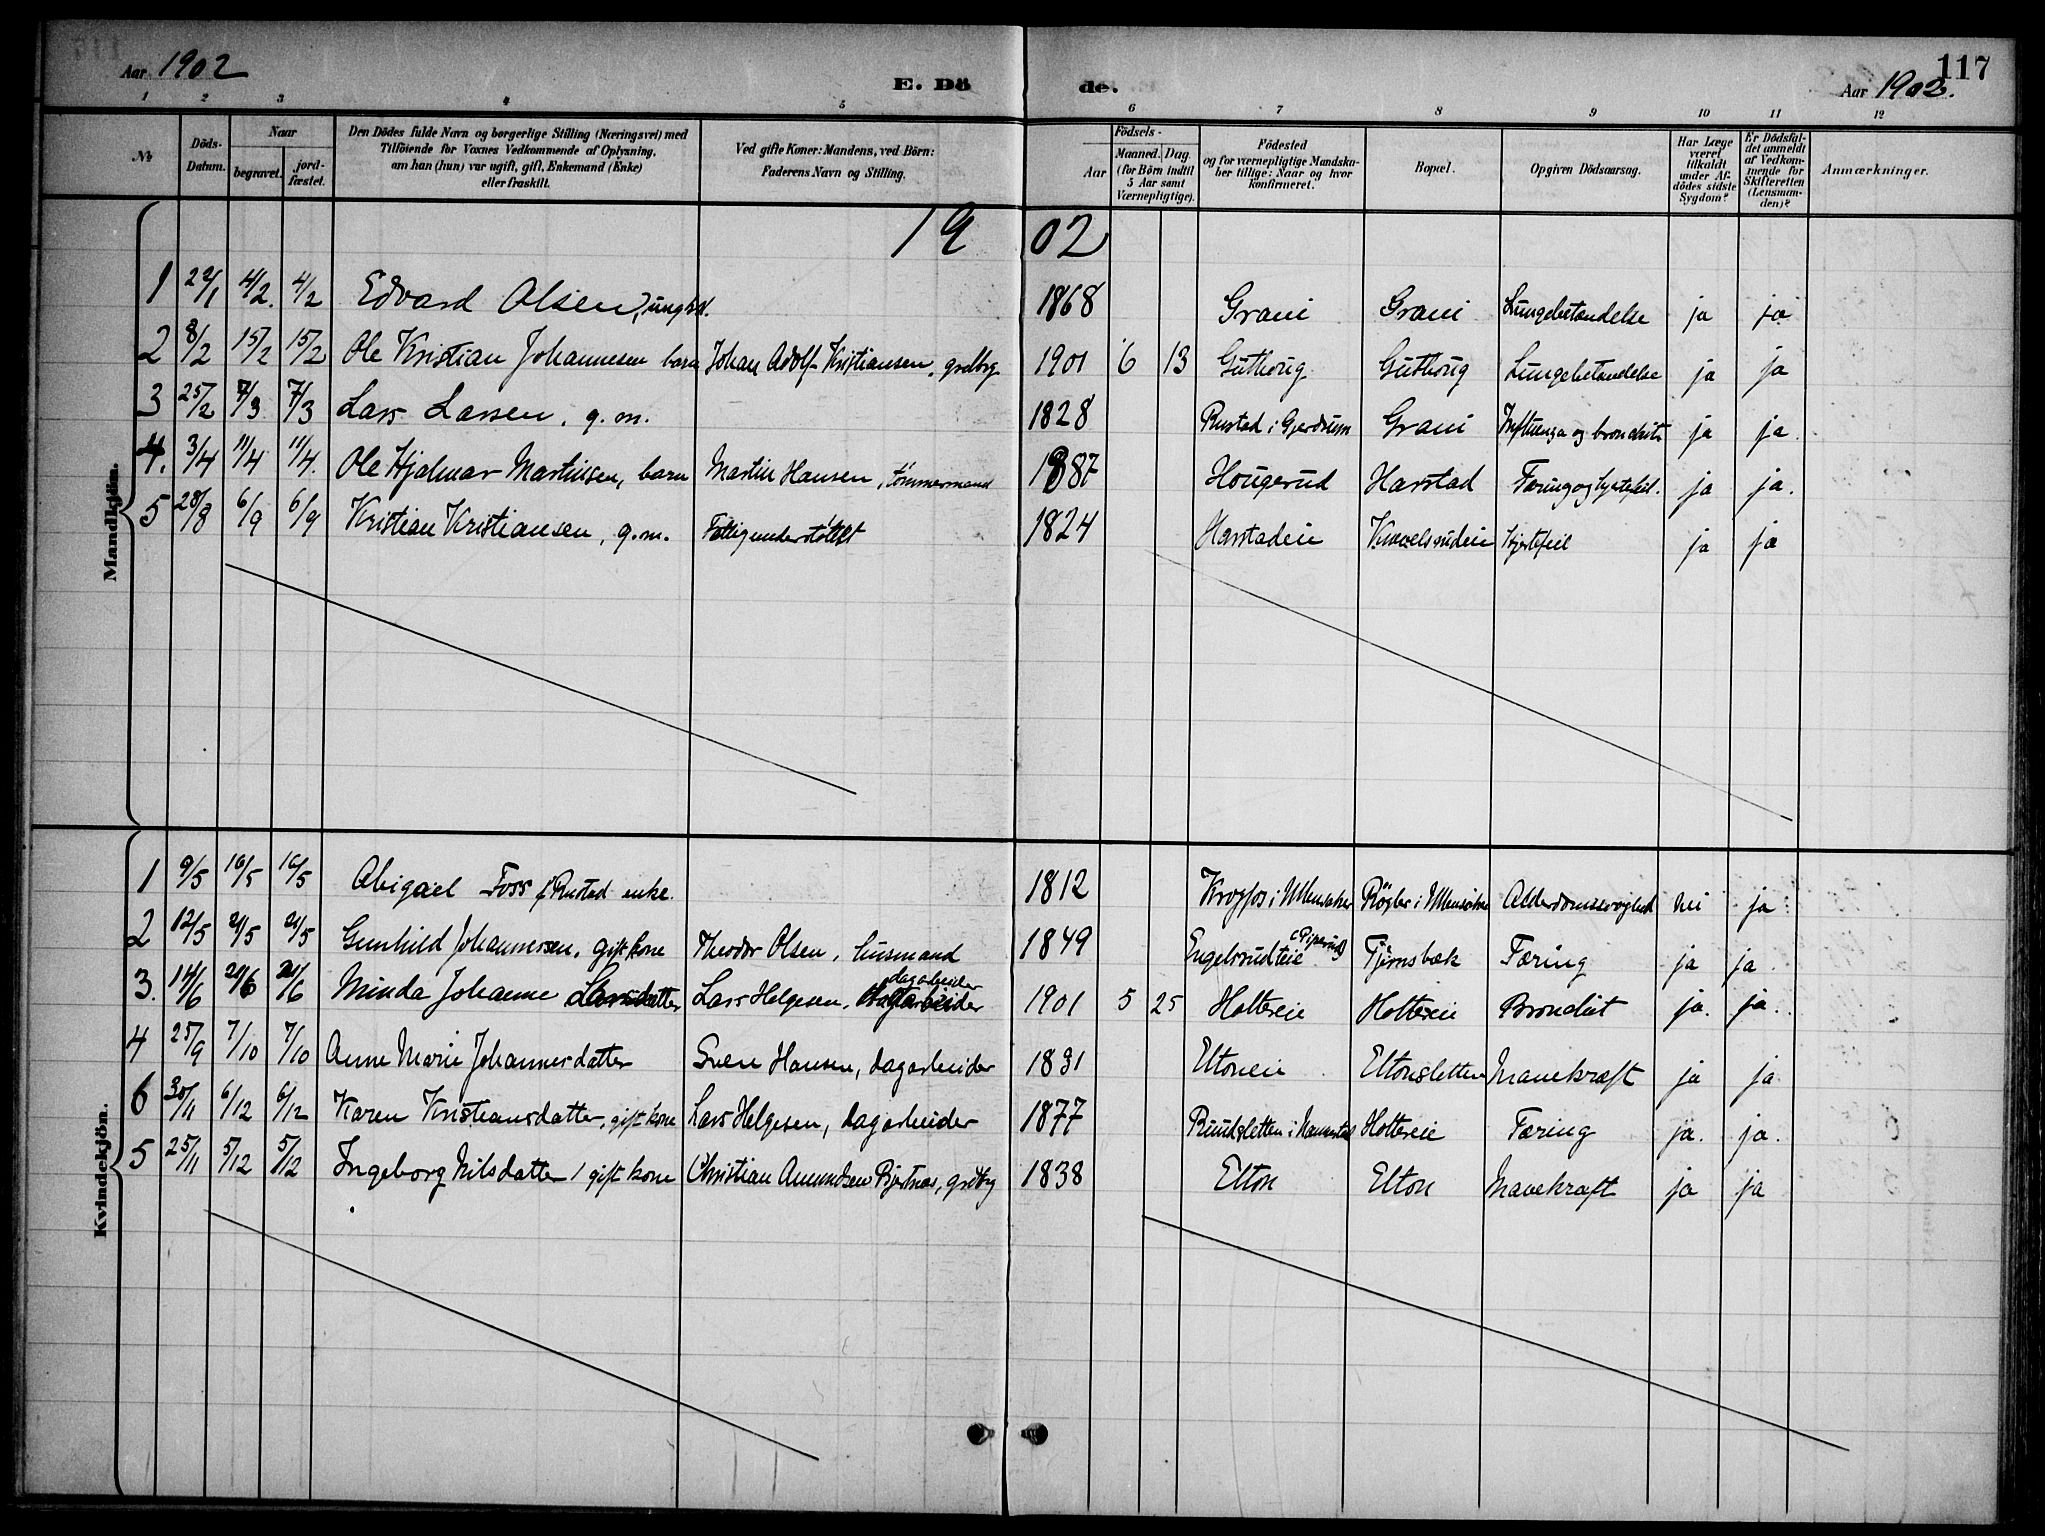 117
Aar 1902
E. Dö de.
Aar 1902.
1 2 3 4 5 6 7 8 9 10 11 12
№
Döds-Datum.
Naar
begravet.
jord-fæstet.
Den Dödes fulde Navn og borgerlige Stilling (Næringsvei) med
Tilföiende for Voxnes Vedkommende af Oplysning,
om han (hun) var ugift, gift, Enkemand (Enke)
eller fraskilt.
Ved gifte Koner: Mandens, ved Börn:
Faderens Navn og Stilling.
Födsels-
Aar
Maaned. Dag.
(for Börn indtil
5 Aar samt
Værnepligtige).
Födested
og for værnepligtige Mandska-
ber tillige: Naar og hvor
konfirmeret.
Bopæl.
Opgiven Dödsaarsag.
Har Læge
været
tilkaldt
under Af-
dödes sidste
Sygdom?
Er Dödsfal-
det anmeldt
af Vedkom-
mende for
Skifteretten
(Lensman-
den)?
Anmærkninger.
1902
Mandkjön.
1 4/2. 4/2 Edvard Olsen, ungkl. 1868 Grani Grani Lungebetændelse ja ja
2 8/2 15/2 15/2 Ole Kristian Johannesen barn Johan Adolf Kristiansen, grdbr 1901 6 13 Guthoug Guthoug Lungebetændelse ja ja
3 25/2 7/3 7/3 Lars Larsen, g. m. 1828 Rustad i Gjerdrum Grani Influenza og bronchit ja ja.
4. 3/4 11/4 11/4. Ole Hjalmar Martinsen, barn Martin Hansen, tömmermand 1887 Hougerud Harstad Tæring og hjertefeil. ja ja.
5 28/8 6/9 6/9 Kristian Kristiansen, g.m. Fattigunderstöttet 1824 Harstadeie hjertefeil ja ja
Kvindekjön.
1 9/5 16/5 16/5 Abigael Foss f. Rustad enke. 1812 Krogfos i Ullensaker Rögler i Ullensaker Alderdomssvaghed nei ja
2 12/5 21/5 21/5 Gunhild Johannessen, gift kone Theodor Olsen, husmand 1849 Engelsrudeie (Piperud) Tjernsbæk Tæring ja ja.
3. 14/6 20/6 20/6 Minda Johanne Larsdatter Lars Helgesen, dagarbeider 1901 5 25 Holtereie Holtereie Bronchit ja. ja.
4 25/9 7/10 7/10 Anne Marie Johannesdatter Sven Hansen, dagarbeider 1831 Eltoneie Eltonsletten Mavekræft ja ja
6 30/11 6/12 6/12 Karen Kristiansdatter, gift kone Lars Helgesen, dagarbeider 1877 Ruudsletten i Nannestad Holtereie Tæring ja. ja.
5 25/11 5/12 5/12 Ingeborg Nilsdatter, gift kone Christian Amundsen Bjertnæs, grdbr 1838 Elton Elton Mavekræft ja ja